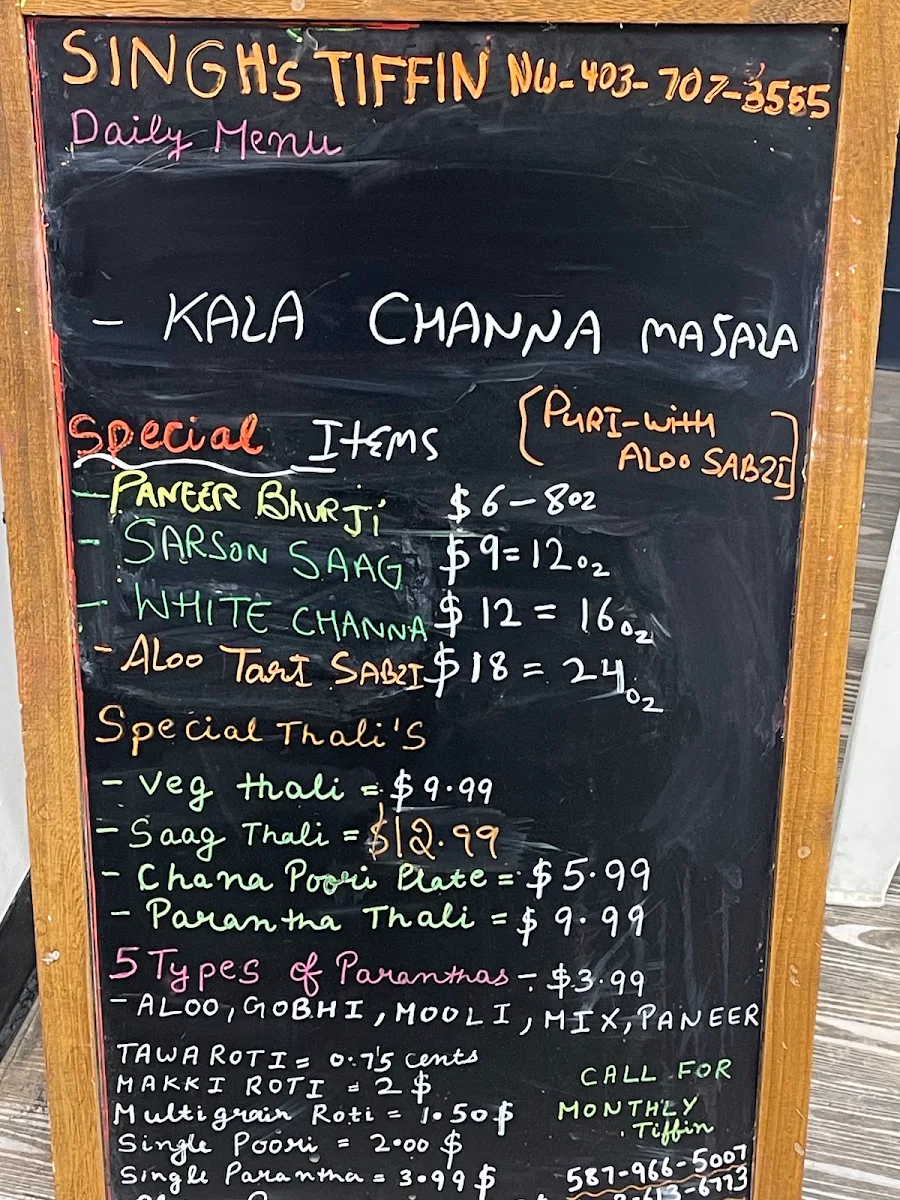 SINGH's TIFFIN NW-403-707-3555
Daily Menu
- KALA CHANNA MASALA
Special Items
[PURI-With
ALOO SABZI]
- PANEER BHURJi $6-8oz
- SARSON SAAG $9=12oz
- WHITE CHANNA $12=16oz
- ALOO TarI SABZI $18=24oz
Special Thali's
- Veg thali = $9.99
- Saag Thali = $12.99
- Chana Poori Plate = $5.99
- Parantha Thali = $9.99
5 Types of Paranthas - $3.99
- ALOO, GOBHI, MOOLI, MIX, PANEER
TAWA ROTI = 0.75 cents
MAKKI ROTI = 2 $
Multigrain Roti = 1.50 $
Single Poori = 2.00 $
Single Parantha = 3.99 $
CALL FOR
MONTHLY
Tiffin
587-966-5007